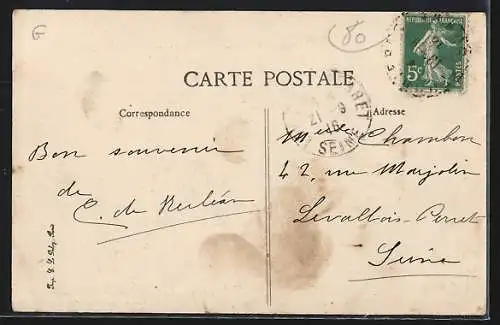 80
REPUBLIQUE FRANÇAISE
5c
POSTES
CARTE POSTALE
Correspondance
Adresse
RET
21 - 9
16
SEINE
Bon souvenir
de
C. de
Melle Chambon
42, rue Marjolin
Levallois-Perret
Seine